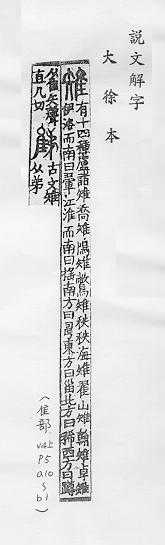 說文解字
大徐本
雉
有十四種盧諸雉喬雉鳪雉鷩雉秩秩海雉翟山雉翰雉卓雉
伊洛而南曰翬江淮而南曰搖南方曰𠷎東方曰甾北方曰稀西方曰蹲
从隹矢聲
直几切
古文雉
从弟
(隹部,
V4上
P5
a10
b1)